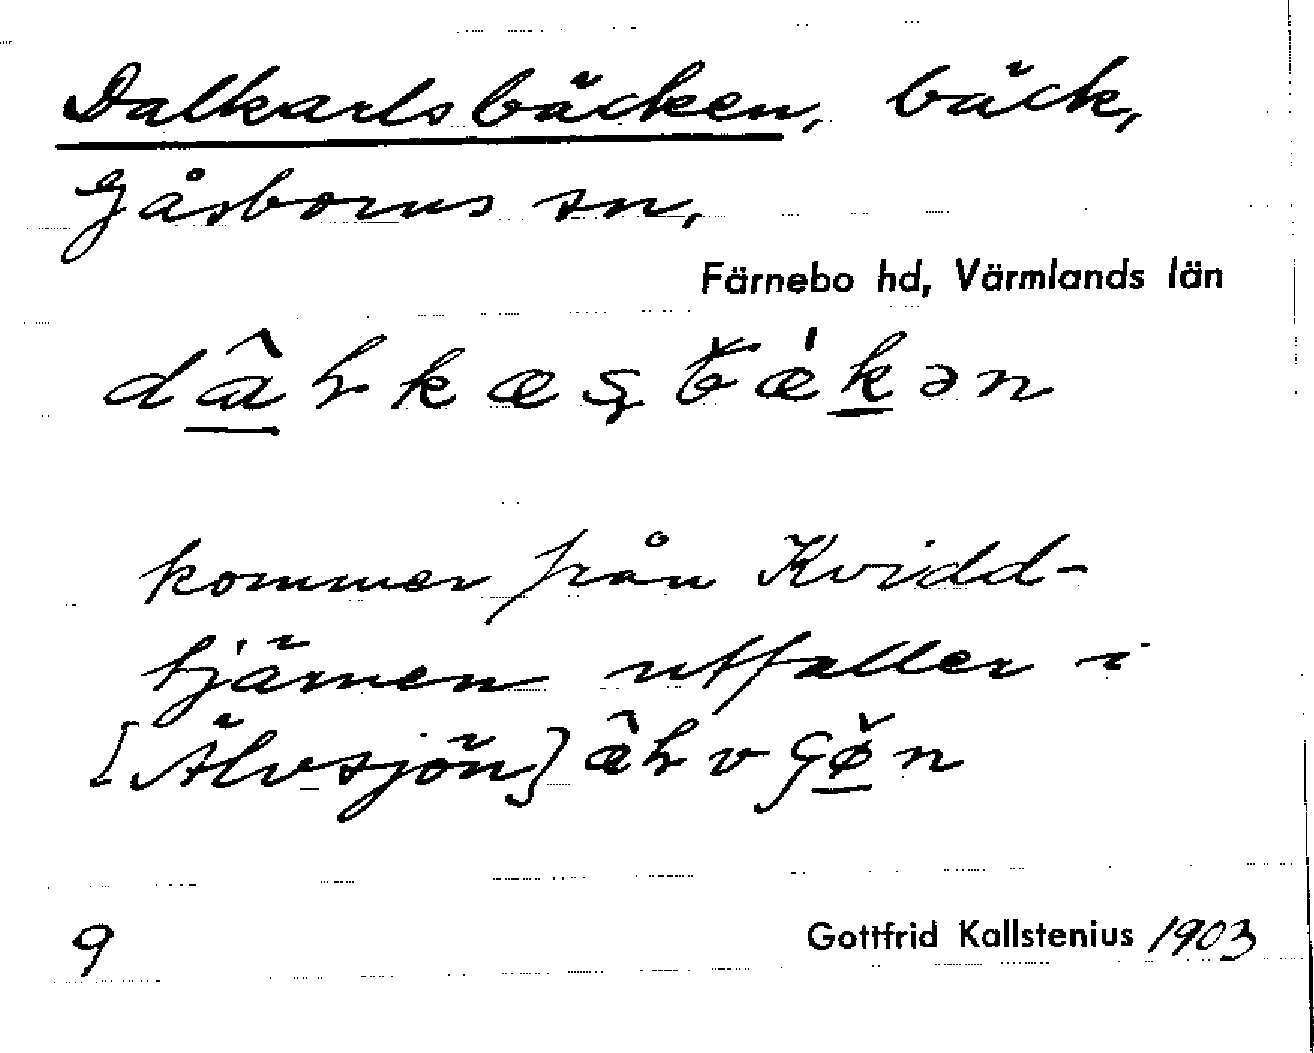 Dalkarlsbäcken, bäck,
Gåsborns sn,
Färnebo hd, Värmlands län
kommer från Kvidd-
tjärnen utfaller i
[Älvsjön]
9
Gottfrid Kallstenius /1903